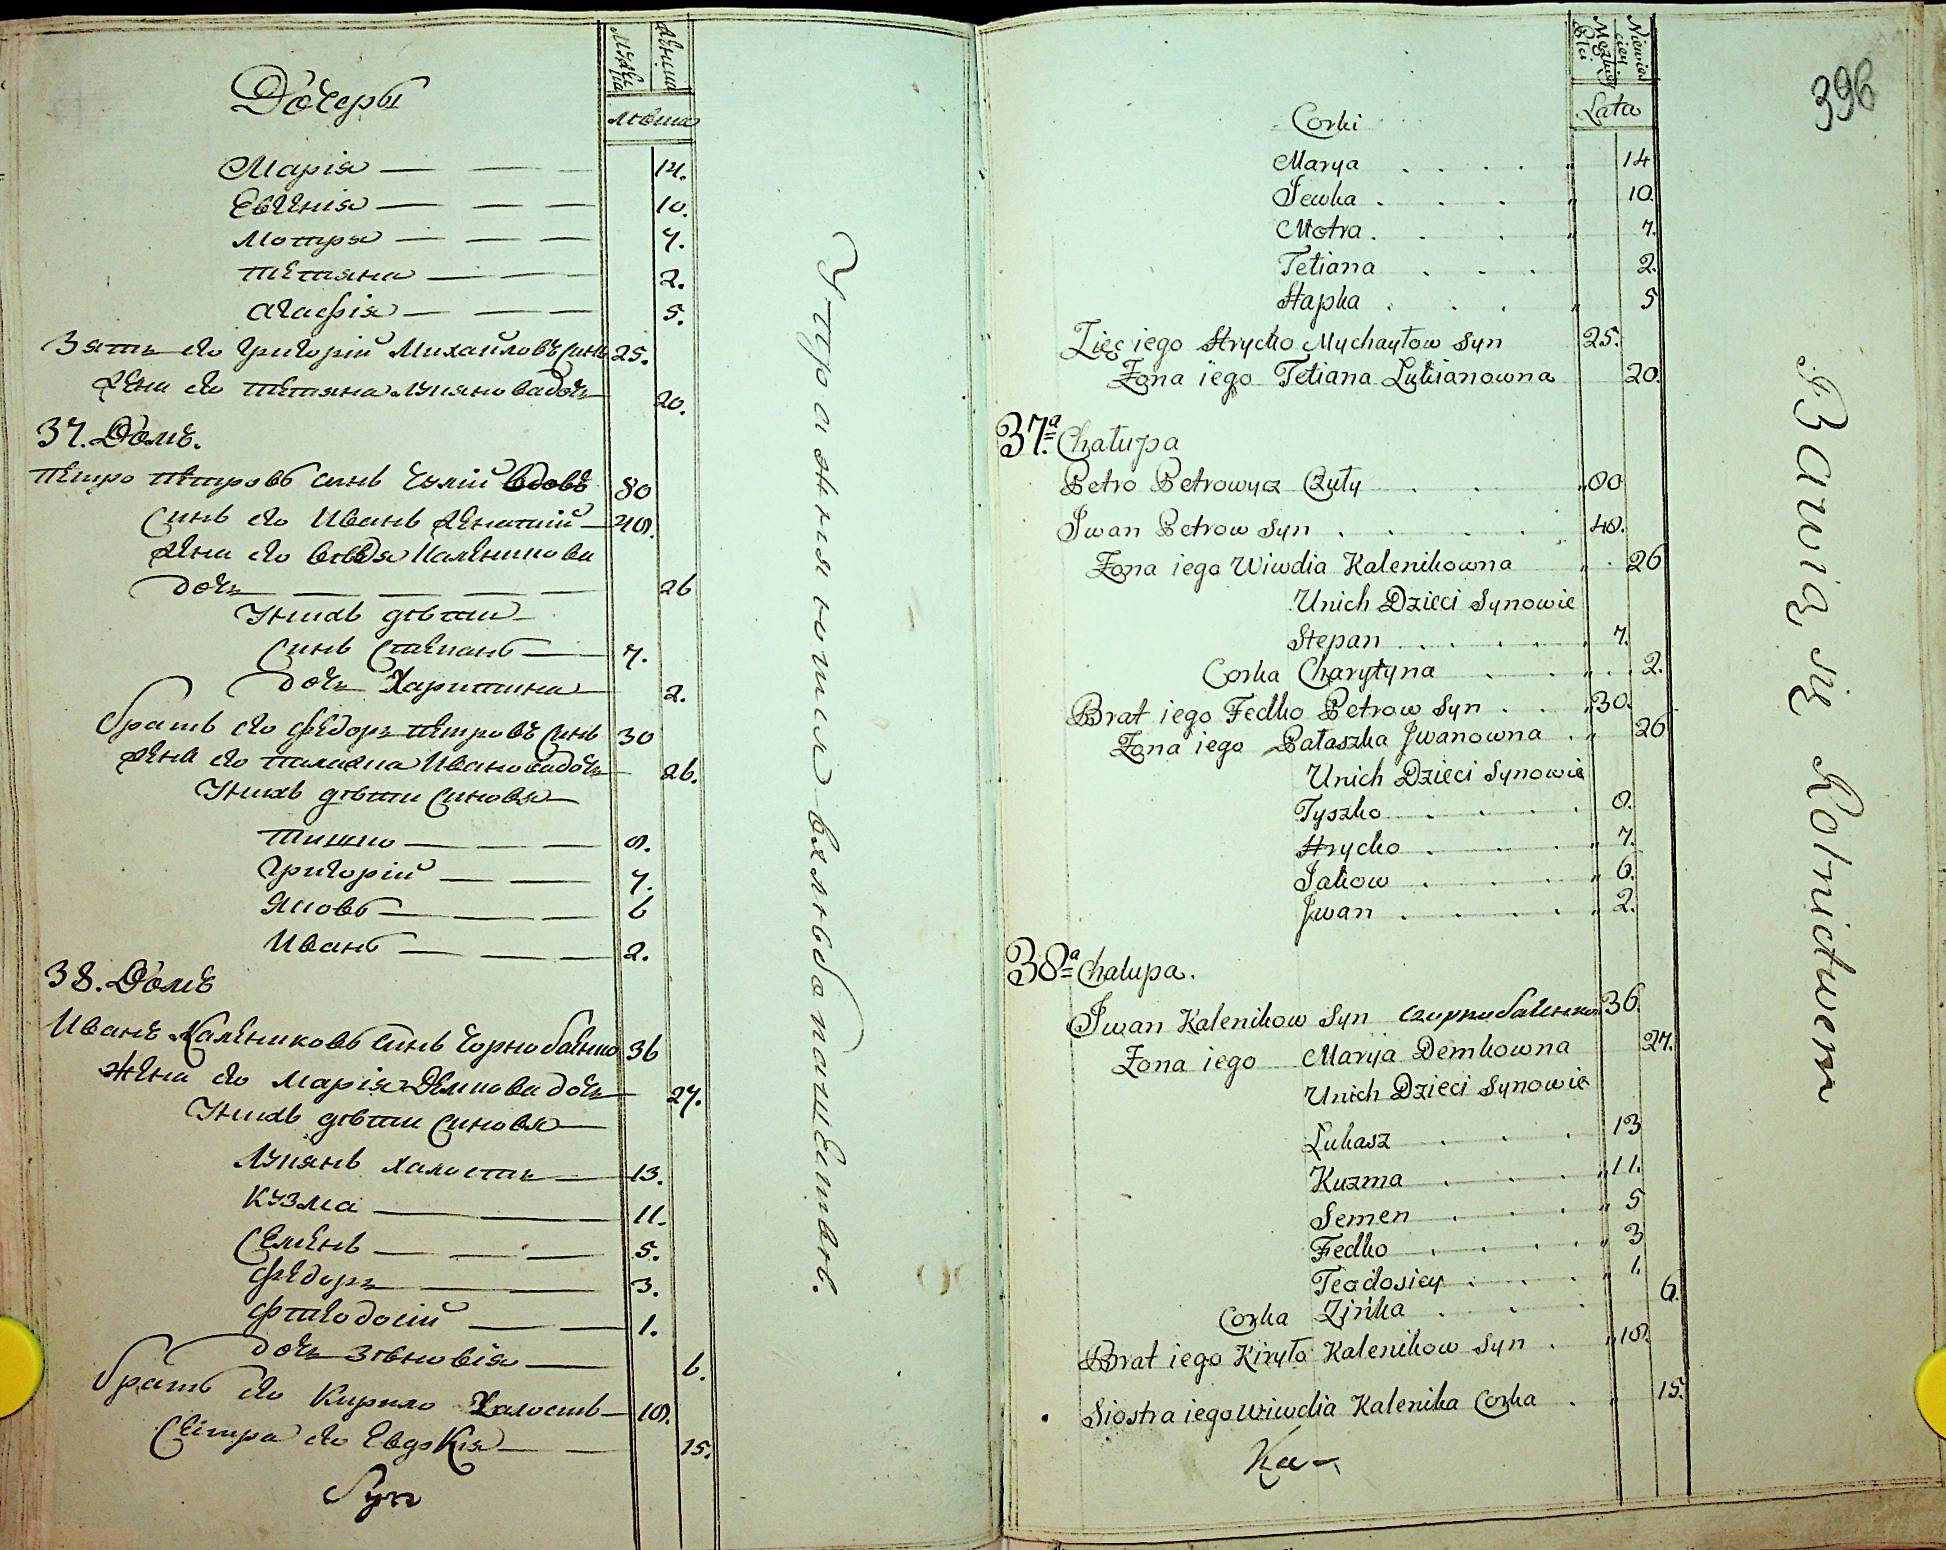 Мужеска
женска
Дочеры
лѣта
Марія 14.
Евгенія 10.
Мотря 7.
Тетяна 2.
Агафія 5.
Зять его Григорій Михайловъ синъ 25.
жена его Тетяна Лукянова дочь 20.
37. Домъ.
Петро Петровъ синъ Чолій вдовъ 80
Синъ его Иванъ женатий 48.
жена его Вѣвдя Каленикова
дочь 26
У нихъ дѣти
Синъ Степанъ 7.
дочь Харитина 2.
братъ его Федоръ Петровъ синъ 30
жена его Палажка Иванова дочь 26.
У нихъ дѣти синовя
Тишко 8.
Григорій 7.
Яковъ 6
Иванъ 2.
38. Домъ
Иванъ Калениковъ синъ Чорнобаенко 36
жена его Марія Демкова дочь 27.
У нихъ дѣти синовя
Лукянъ халостъ 13.
Кузма 11.
Семенъ 5.
Федоръ 3.
Фтеодосій 1.
дочь Зѣновія 6.
братъ его Кирило Халостъ 18.
Сестра его Евдокія 15.
Syn
Упражняются в хлѣбопашествѣ.
396
Męzkiey Płci
Niewieściey
Lata
Corki
Marya 14
Jewka 10.
Motra 7.
Tetiana 2.
Hapka 5
Zięć iego Hrycko Mychayłow Syn 25.
Żona iego Tetiana Lukianowna 20.
37.ª Chałupa
Petro Petrowycz Czuły 80
Jwan Petrow Syn 48.
Żona iego Wiwdia Kalenikowna 26
Unich Dzieci Synowie
Stepan 7.
Corka Charytyna 2.
Brat iego Fedko Petrow Syn 30.
Żona iego Pałaszka Jwanowna 26
Unich Dzieci Synowie
Tyszko 8.
Hrycko 7.
Jakow 6.
Jwan 2.
38.ª Chalupa.
Jwan Kalenikow Syn Czornobaienko 36.
Żona iego Marya Demkowna 27.
Unich Dzieci Synowie
Lukasz 13
Kuzma 11.
Semen 5
Fedko 3
Teodosiey 1.
Corka Zińka 6.
Brat iego Kiryło Kalenikow Syn 18.
Siostra iego Wiwdia Kalenika Corka 15.
Ka-
Bawią się Rolnictwem